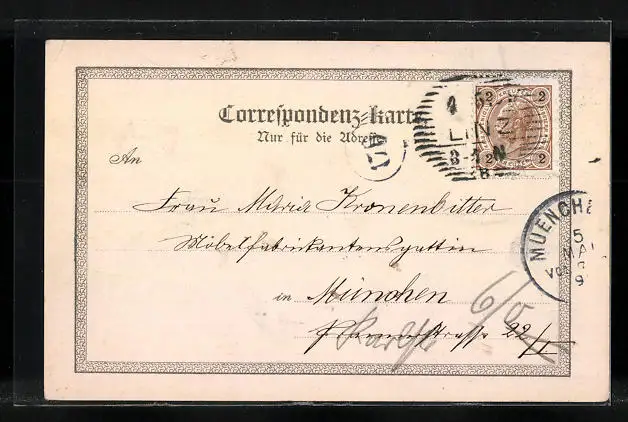 Correspondenz-Karte
Nur für die Adresse
An
Frau Maria Kronenbitter
Möbelfabrikantensgattin
in München
strasse 22/I
2 KREUZER 2
2 2
LINZ
8-
N
MUENCHE
5
MAI